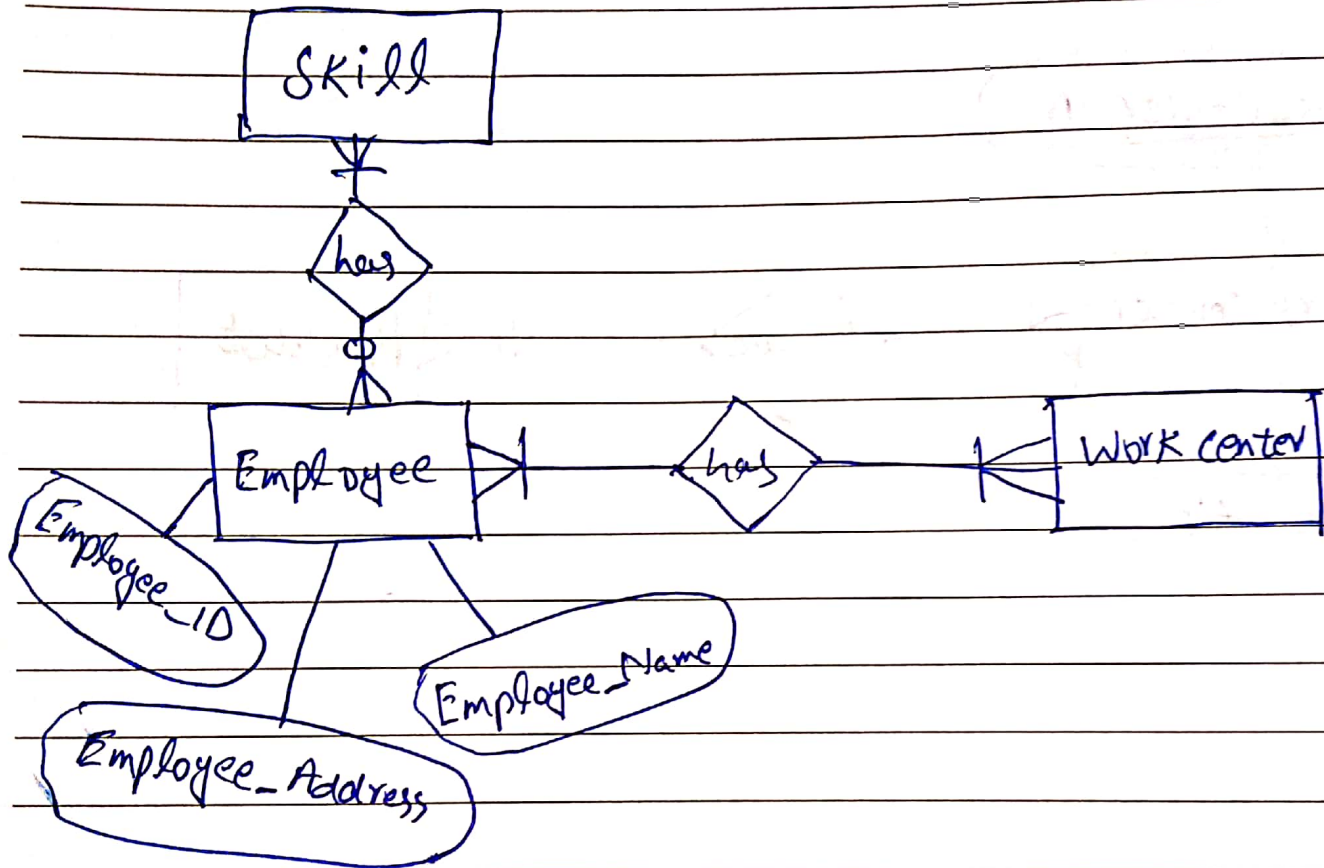 Skill
has
Employee
has
Work center
Employee_ID
Employee_Name
Employee_Address